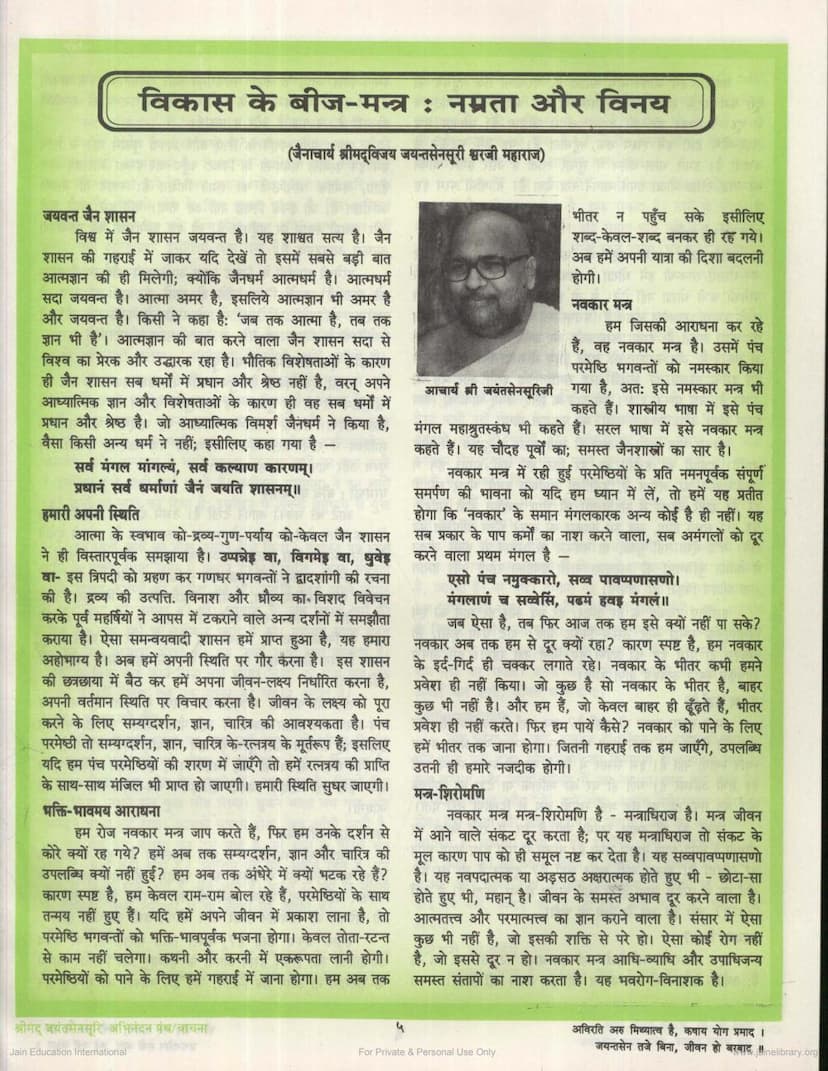 विकास के बीज-मन्त्र : नम्रता और विनय
(जैनाचार्य श्रीमद्विजय जयन्तसेनसूरी श्वरजी महाराज)
जयवन्त जैन शासन
विश्व में जैन शासन जयवन्त है। यह शाश्वत सत्य है। जैन
शासन की गहराई में जाकर यदि देखें तो इसमें सबसे बड़ी बात
आत्मज्ञान की ही मिलेगी; क्योंकि जैनधर्म आत्मधर्म है। आत्मधर्म
सदा जयवन्त है। आत्मा अमर है, इसलिये आत्मज्ञान भी अमर है
और जयवन्त है। किसी ने कहा है: ‘जब तक आत्मा है, तब तक
ज्ञान भी है’। आत्मज्ञान की बात करने वाला जैन शासन सदा से
विश्व का प्रेरक और उद्धारक रहा है। भौतिक विशेषताओं के कारण
ही जैन शासन सब धर्मों में प्रधान और श्रेष्ठ नहीं है, वरन् अपने
आध्यात्मिक ज्ञान और विशेषताओं के कारण ही वह सब धर्मों में
प्रधान और श्रेष्ठ है। जो आध्यात्मिक विमर्श जैनधर्म ने किया है,
वैसा किसी अन्य धर्म ने नहीं; इसीलिए कहा गया है –
सर्व मंगल मांगल्यं, सर्व कल्याण कारणम्।
प्रधानं सर्व धर्माणां जैनं जयति शासनम्॥
हमारी अपनी स्थिति
आत्मा के स्वभाव को-द्रव्य-गुण-पर्याय को-केवल जैन शासन
ने ही विस्तारपूर्वक समझाया है। उप्पन्नेइ वा, विगमेइ वा, धुवेइ
वा- इस त्रिपदी को ग्रहण कर गणधर भगवन्तों ने द्वादशांगी की रचना
की है। द्रव्य की उत्पत्ति. विनाश और ध्रौव्य का विशद विवेचन
करके पूर्व महर्षियों ने आपस में टकराने वाले अन्य दर्शनों में समझौता
कराया है। ऐसा समन्वयवादी शासन हमें प्राप्त हुआ है, यह हमारा
अहोभाग्य है। अब हमें अपनी स्थिति पर गौर करना है। इस शासन
की छत्रछाया में बैठ कर हमें अपना जीवन-लक्ष्य निर्धारित करना है,
अपनी वर्तमान स्थिति पर विचार करना है। जीवन के लक्ष्य को पूरा
करने के लिए सम्यग्दर्शन, ज्ञान, चारित्र की आवश्यकता है। पंच
परमेष्ठी तो सम्यग्दर्शन, ज्ञान, चारित्र के-रत्नत्रय के मूर्तरूप हैं; इसलिए
यदि हम पंच परमेष्ठियों की शरण में जाएँगे तो हमें रत्नत्रय की प्राप्ति
के साथ-साथ मंजिल भी प्राप्त हो जाएगी। हमारी स्थिति सुधर जाएगी।
भक्ति-भावमय आराधना
हम रोज नवकार मन्त्र जाप करते हैं, फिर हम उनके दर्शन से
कोरे क्यों रह गये? हमें अब तक सम्यग्दर्शन, ज्ञान और चारित्र की
उपलब्धि क्यों नहीं हुई? हम अब तक अंधेरे में क्यों भटक रहे हैं?
कारण स्पष्ट है, हम केवल राम-राम बोल रहे हैं, परमेष्ठियों के साथ
तन्मय नहीं हुए हैं। यदि हमें अपने जीवन में प्रकाश लाना है, तो
परमेष्ठि भगवन्तों को भक्ति-भावपूर्वक भजना होगा। केवल तोता-रटन्त
से काम नहीं चलेगा। कथनी और करनी में एकरूपता लानी होगी।
परमेष्ठियों को पाने के लिए हमें गहराई में जाना होगा। हम अब तक
आचार्य श्री जयंतसेनसूरिजी
भीतर न पहुँच सके इसीलिए
शब्द-केवल-शब्द बनकर ही रह गये।
अब हमें अपनी यात्रा की दिशा बदलनी
होगी।
नवकार मन्त्र
हम जिसकी आराधना कर रहे
हैं, वह नवकार मन्त्र है। उसमें पंच
परमेष्ठि भगवन्तों को नमस्कार किया
गया है, अत: इसे नमस्कार मन्त्र भी
कहते हैं। शास्त्रीय भाषा में इसे पंच
मंगल महाश्रुतस्कंध भी कहते हैं। सरल भाषा में इसे नवकार मन्त्र
कहते हैं। यह चौदह पूर्वों का; समस्त जैनशास्त्रों का सार है।
नवकार मन्त्र में रही हुई परमेष्ठियों के प्रति नमनपूर्वक संपूर्ण
समर्पण की भावना को यदि हम ध्यान में लें, तो हमें यह प्रतीत
होगा कि ‘नवकार’ के समान मंगलकारक अन्य कोई है ही नहीं। यह
सब प्रकार के पाप कर्मों का नाश करने वाला, सब अमंगलों को दूर
करने वाला प्रथम मंगल है –
एसो पंच नमुक्कारो, सव्व पावप्पणासणो।
मंगलाणं च सव्वेसिं, पढमं हवइ मंगलं॥
जब ऐसा है, तब फिर आज तक हम इसे क्यों नहीं पा सके?
नवकार अब तक हम से दूर क्यों रहा? कारण स्पष्ट है, हम नवकार
के इर्द-गिर्द ही चक्कर लगाते रहे। नवकार के भीतर कभी हमने
प्रवेश ही नहीं किया। जो कुछ है सो नवकार के भीतर है, बाहर
कुछ भी नहीं है। और हम हैं, जो केवल बाहर ही ढूँढ़ते हैं, भीतर
प्रवेश ही नहीं करते। फिर हम पायें कैसे? नवकार को पाने के लिए
हमें भीतर तक जाना होगा। जितनी गहराई तक हम जाएँगे, उपलब्धि
उतनी ही हमारे नजदीक होगी।
मन्त्र-शिरोमणि
नवकार मन्त्र मन्त्र-शिरोमणि है - मन्त्राधिराज है। मन्त्र जीवन
में आने वाले संकट दूर करता है; पर यह मन्त्राधिराज तो संकट के
मूल कारण पाप को ही समूल नष्ट कर देता है। यह सव्वपावप्पणासणो
है। यह नवपदात्मक या अड़सठ अक्षरात्मक होते हुए भी - छोटा-सा
होते हुए भी, महान् है। जीवन के समस्त अभाव दूर करने वाला है।
आत्मतत्त्व और परमात्मत्त्व का ज्ञान कराने वाला है। संसार में ऐसा
कुछ भी नहीं है, जो इसकी शक्ति से परे हो। ऐसा कोई रोग नहीं
है, जो इससे दूर न हो। नवकार मन्त्र आधि-व्याधि और उपाधिजन्य
समस्त संतापों का नाश करता है। यह भवरोग-विनाशक है।
श्रीमद् जयंतसेनसूरि अभिनंदन ग्रंथ/वाचना
५
अविरति अरु मिथ्यात्व है, कषाय योग प्रमाद ।
जयन्तसेन तजे बिना, जीवन हो बरबाद ॥
Jain Education International
For Private & Personal Use Only
www.jainelibrary.org